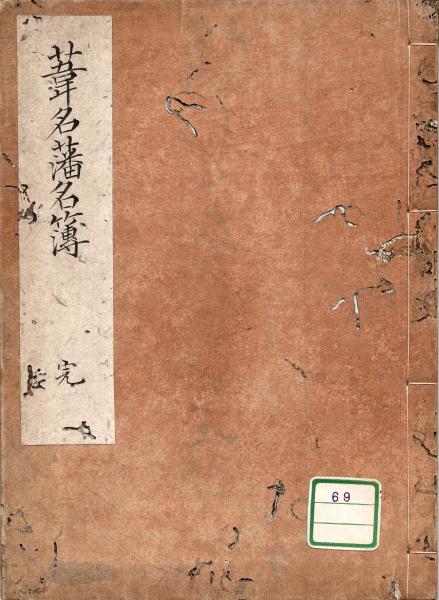 葦名藩名簿
完
69